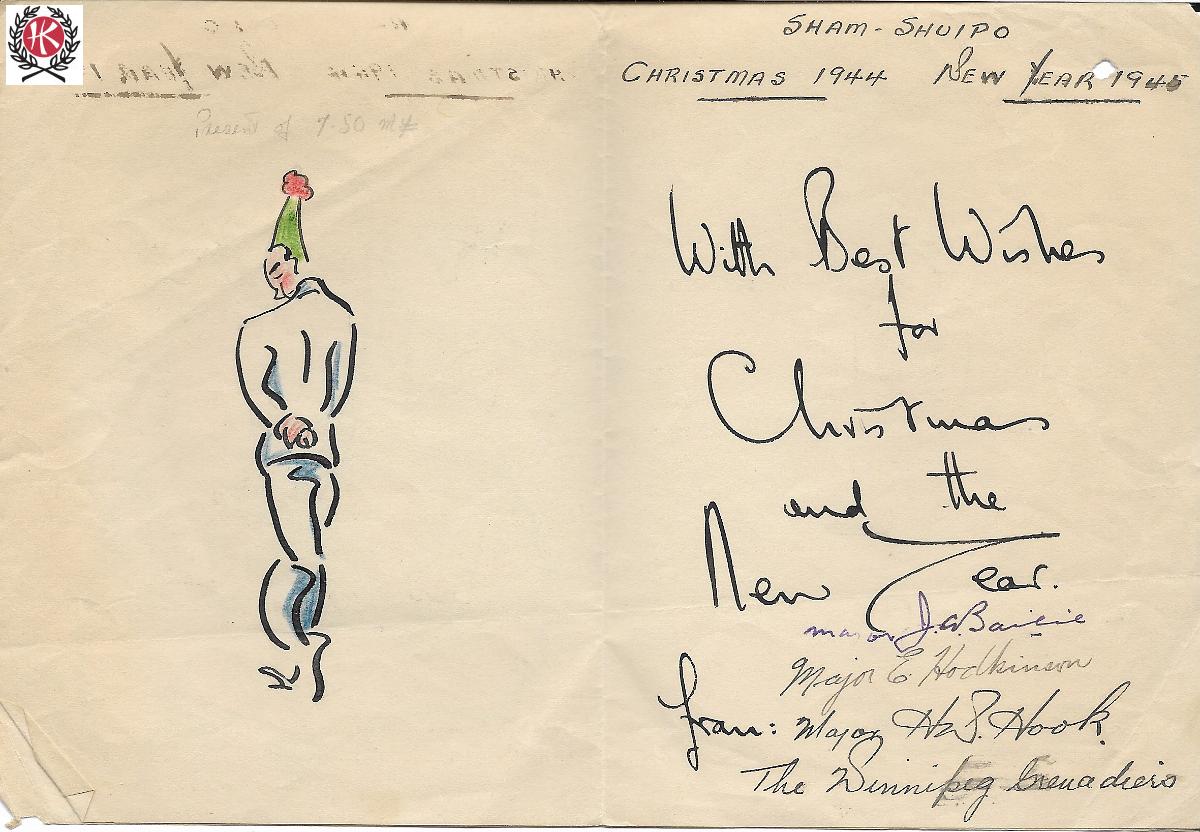 HK
Present of 7.50 m¥
SHAM-SHUIPO
CHRISTMAS 1944 NEW YEAR 1945
With Best Wishes
for
Christmas
and the
New Year.
Major J.A. Bailie
Major E Hodkinson
from: Major H.W. Hook.
The Winnipeg Grenadiers